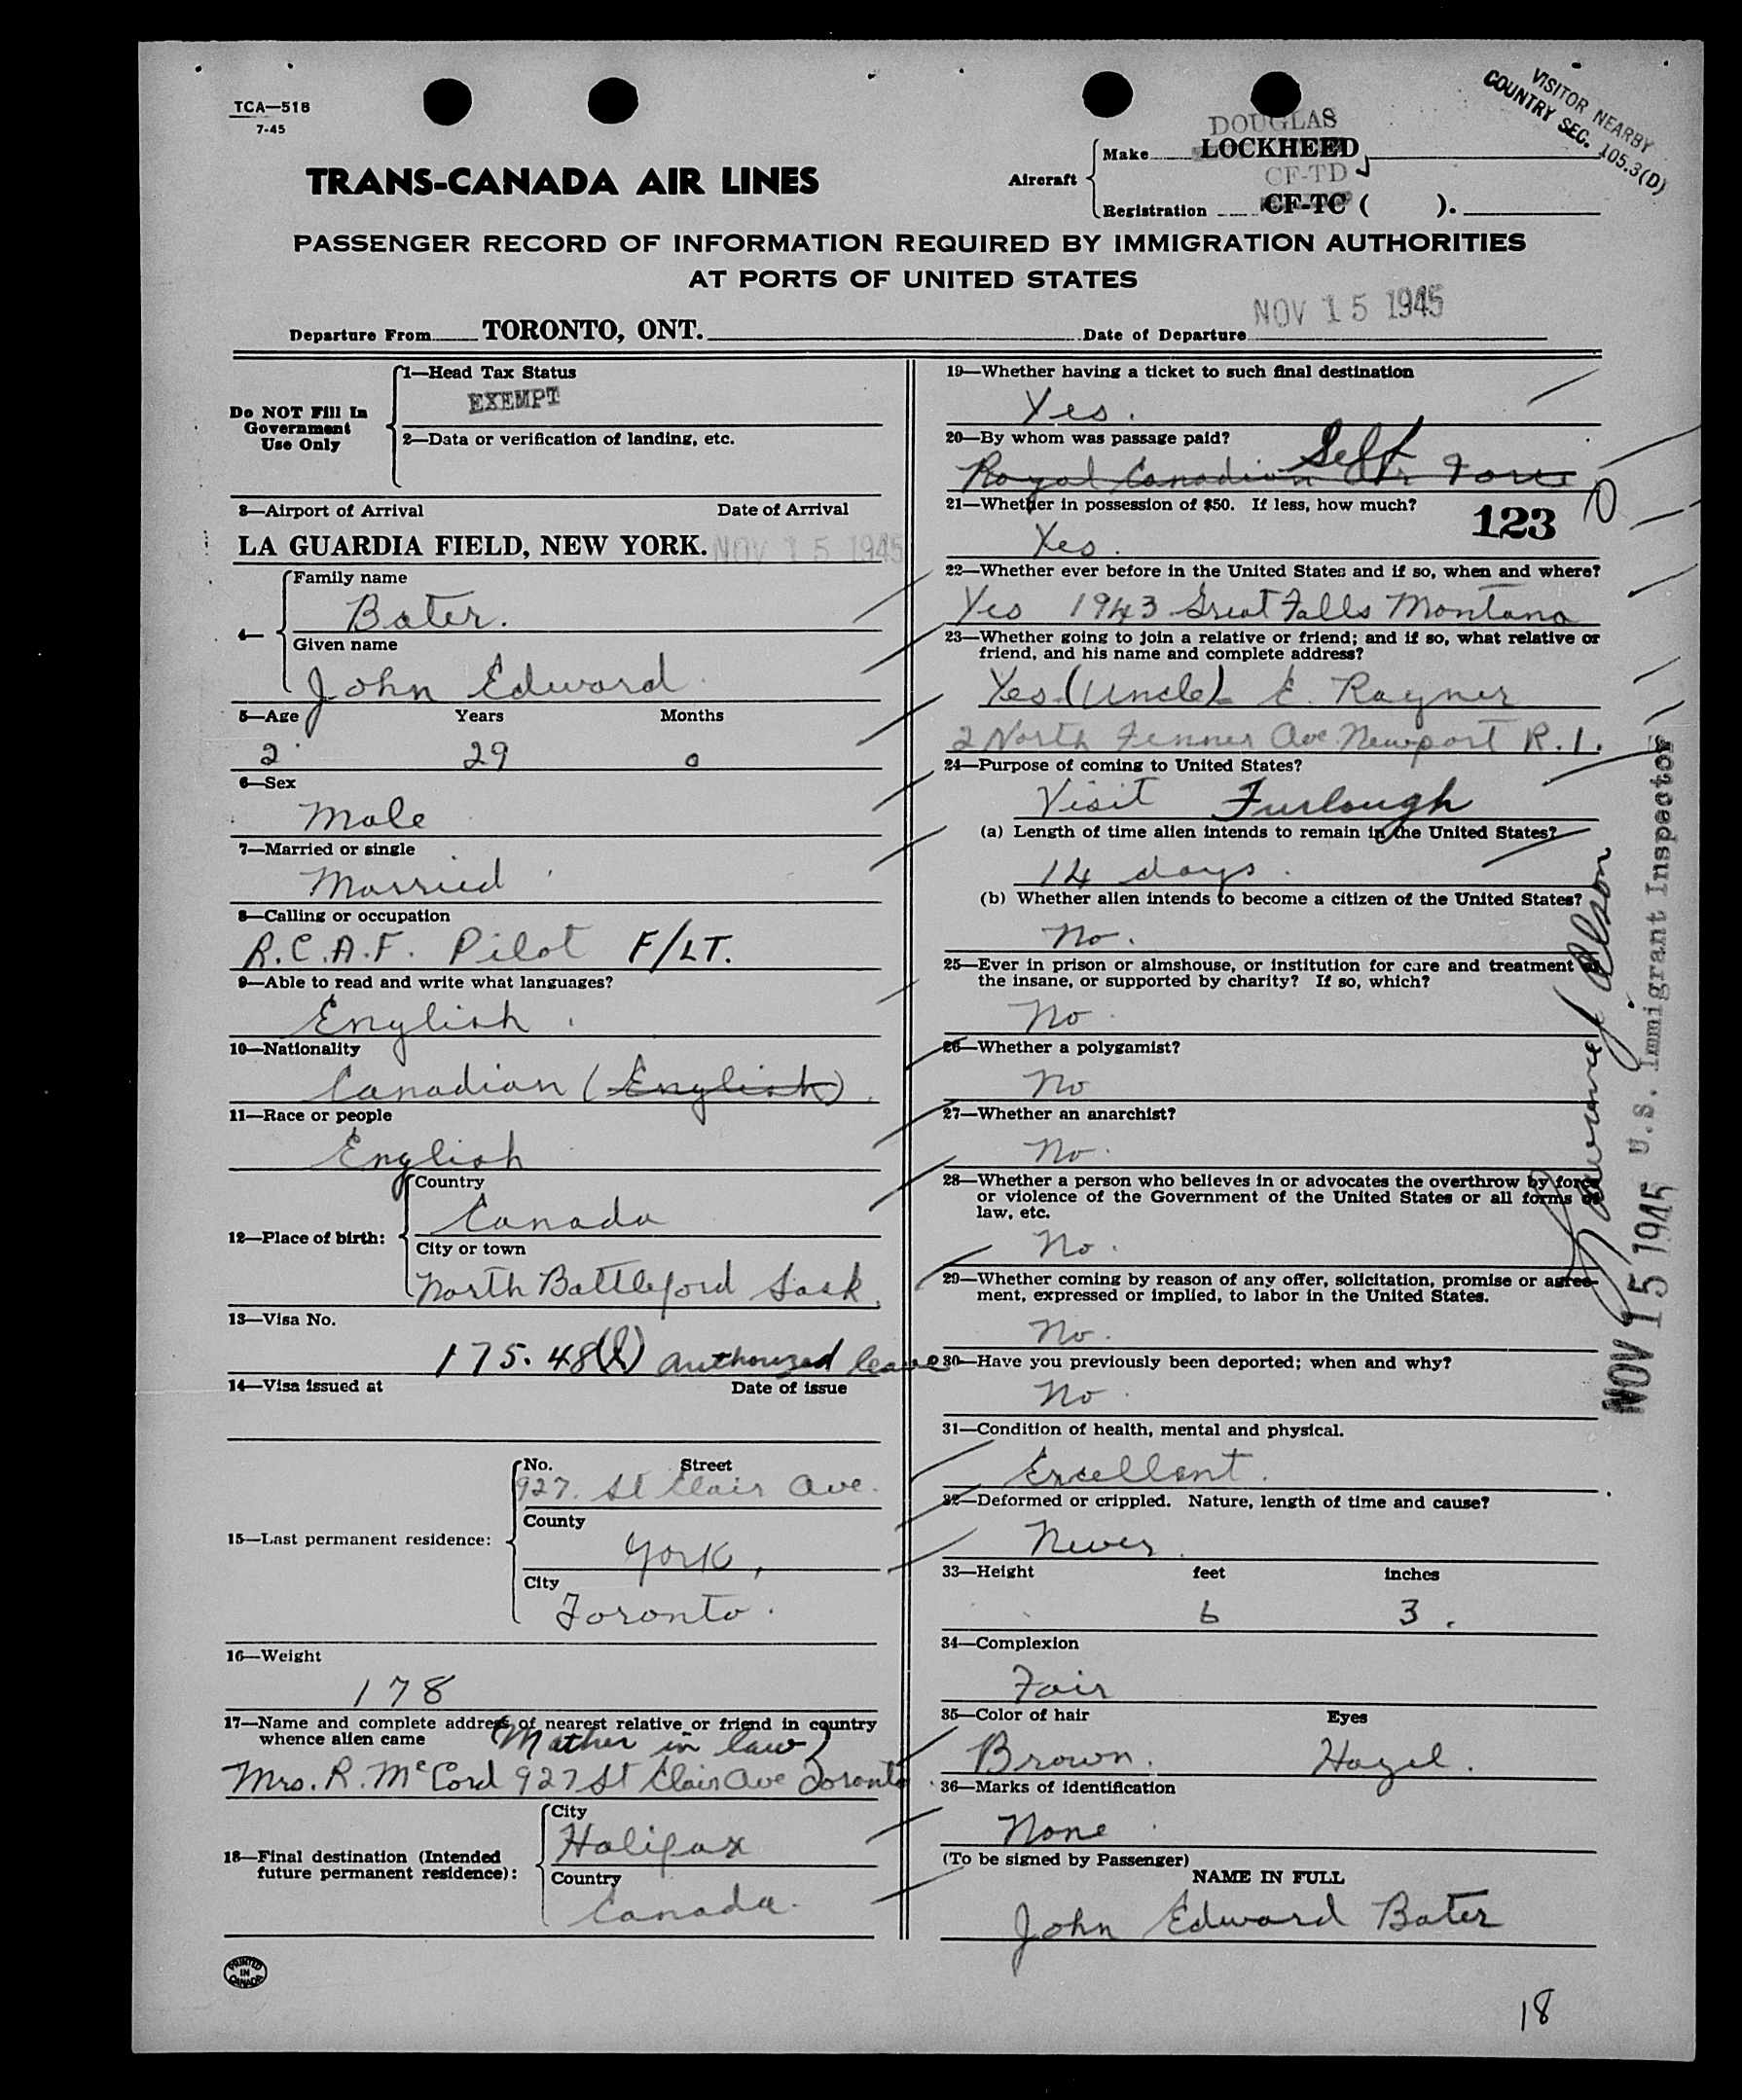 TCA—518
7-45
VISITOR NEARBY
COUNTRY SEC. 105.3(D)
DOUGLAS
Make LOCKHEED
TRANS-CANADA AIR LINES
Aircraft
CF-TD
Registration CF-TC ( ).
PASSENGER RECORD OF INFORMATION REQUIRED BY IMMIGRATION AUTHORITIES
AT PORTS OF UNITED STATES
Departure From TORONTO, ONT. Date of Departure NOV 15 1945
Do NOT Fill In
Government
Use Only
1—Head Tax Status
EXEMPT
2—Data or verification of landing, etc.
3—Airport of Arrival Date of Arrival
LA GUARDIA FIELD, NEW YORK. NOV 15 1945
4—
Family name
Bater.
Given name
John Edward
5—Age Years Months
2 29 0
6—Sex
Male
7—Married or single
Married
8—Calling or occupation
R.C.A.F. Pilot F/LT.
9—Able to read and write what languages?
English.
10—Nationality
Canadian (English).
11—Race or people
English
12—Place of birth:
Country
Canada
City or town
North Battleford Sask.
13—Visa No.
175.48(l) authorized leave
14—Visa issued at Date of issue
15—Last permanent residence:
No. Street
927. St Clair Ave.
County
York,
City
Toronto.
16—Weight
178
17—Name and complete address of nearest relative or friend in country
whence alien came (Mother in law)
Mrs. R. McCord 927 St Clair Ave Toronto
18—Final destination (Intended
future permanent residence):
City
Halifax
Country
Canada.
PRINTED
IN
CANADA
19—Whether having a ticket to such final destination
Yes.
20—By whom was passage paid? Self
Royal Canadian Air Force
21—Whether in possession of $50. If less, how much?
Yes. 123
22—Whether ever before in the United States and if so, when and where?
Yes 1943 Great Falls Montana
23—Whether going to join a relative or friend; and if so, what relative or
friend, and his name and complete address?
Yes (Uncle) E. Rayner
2 North Fenner Ave. Newport R.I.
24—Purpose of coming to United States?
Visit Furlough
(a) Length of time alien intends to remain in the United States?
14 days.
(b) Whether alien intends to become a citizen of the United States?
No.
25—Ever in prison or almshouse, or institution for care and treatment of
the insane, or supported by charity? If so, which?
No
26—Whether a polygamist?
No
27—Whether an anarchist?
No.
28—Whether a person who believes in or advocates the overthrow by force
or violence of the Government of the United States or all forms of
law, etc.
No.
29—Whether coming by reason of any offer, solicitation, promise or agree-
ment, expressed or implied, to labor in the United States.
No.
30—Have you previously been deported; when and why?
No
31—Condition of health, mental and physical.
Excellent.
32—Deformed or crippled. Nature, length of time and cause?
Never.
33—Height feet inches
6 3.
34—Complexion
Fair
35—Color of hair Eyes
Brown. Hazel.
36—Marks of identification
None
(To be signed by Passenger)
NAME IN FULL
John Edward Bater
NOV 15 1945 U.S. Immigrant Inspector
18